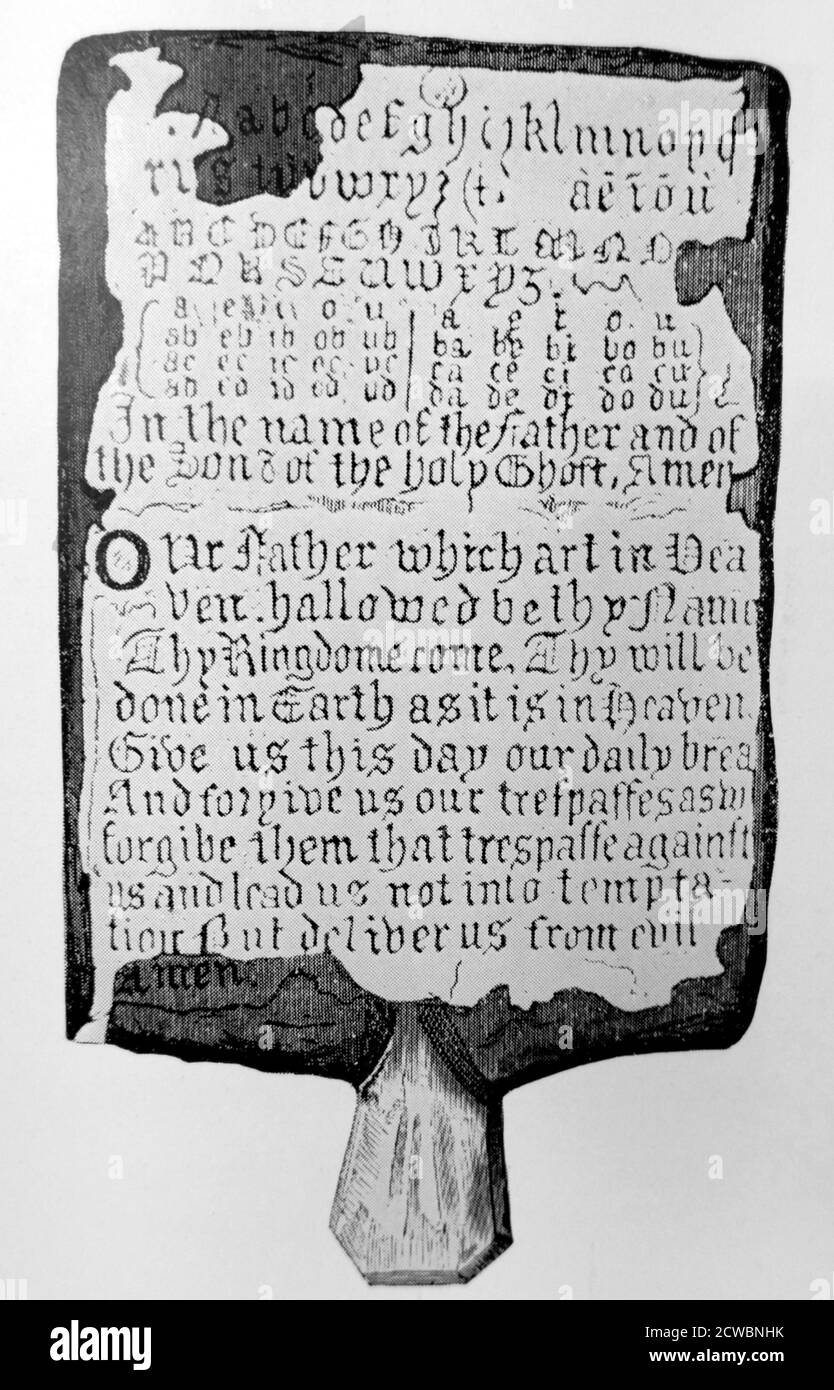 a b c d e f g h i j k l m n o p q
r ſ s t v u w x y z (t. à ē ī ō ù
A B C D E F G H I K L M N O
P Q R S T U W X Y Z
a e i o u | a e i o u
ab eb ib ob ub | ba be bi bo bu
ac ec ic oc uc | ca ce ci co cu
ad ed id od ud | da de di do du
In the name of the Father and of
the Son & of the holy Ghoſt, Amen
OUr Father which art in Hea
ven. hallowed be thy Name
Thy Kingdome come. Thy will be
done in Earth as it is in Heaven.
Give us this day our daily brea
And forgive us our treſpaſſes as w
forgive them that trespaſſe againſt
us and lead us not into tempta-
tion But deliver us from evil
Amen.
alamy
Image ID: 2CWBNHK
www.alamy.com